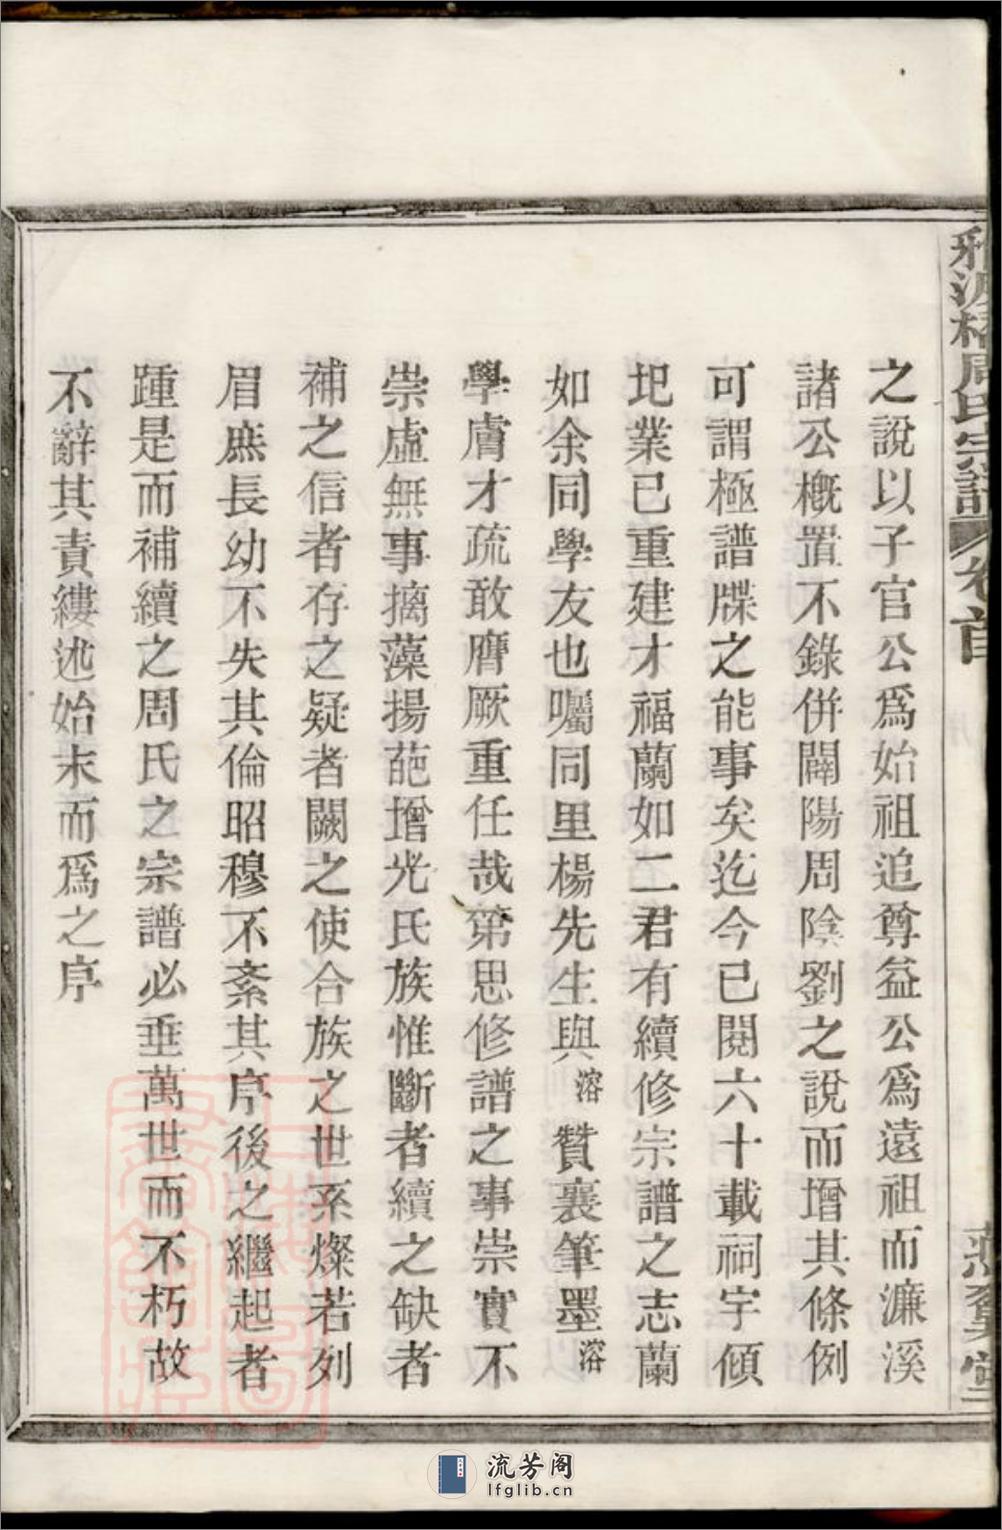 周氏宗譜
卷首
之說以子官公爲始祖追尊益公爲遠祖而濂溪
諸公槪置不錄併闢陽周陰劉之說而增其條例
可謂極譜牒之能事矣迄今已閱六十載祠宇傾
圯業已重建才福蘭如二君有續修宗譜之志蘭
如余同學友也囑同里楊先生與溶贊襄筆墨溶
學膚才疏敢膺厥重任哉第思修譜之事崇實不
崇虛無事摛藻揚葩增光氏族惟斷者續之缺者
補之信者存之疑者闕之使合族之世系燦若列
眉庶長幼不失其倫昭穆不紊其序後之繼起者
踵是而補續之周氏之宗譜必垂萬世而不朽故
不辭其責縷述始末而爲之序
流芳阁
lfglib.cn